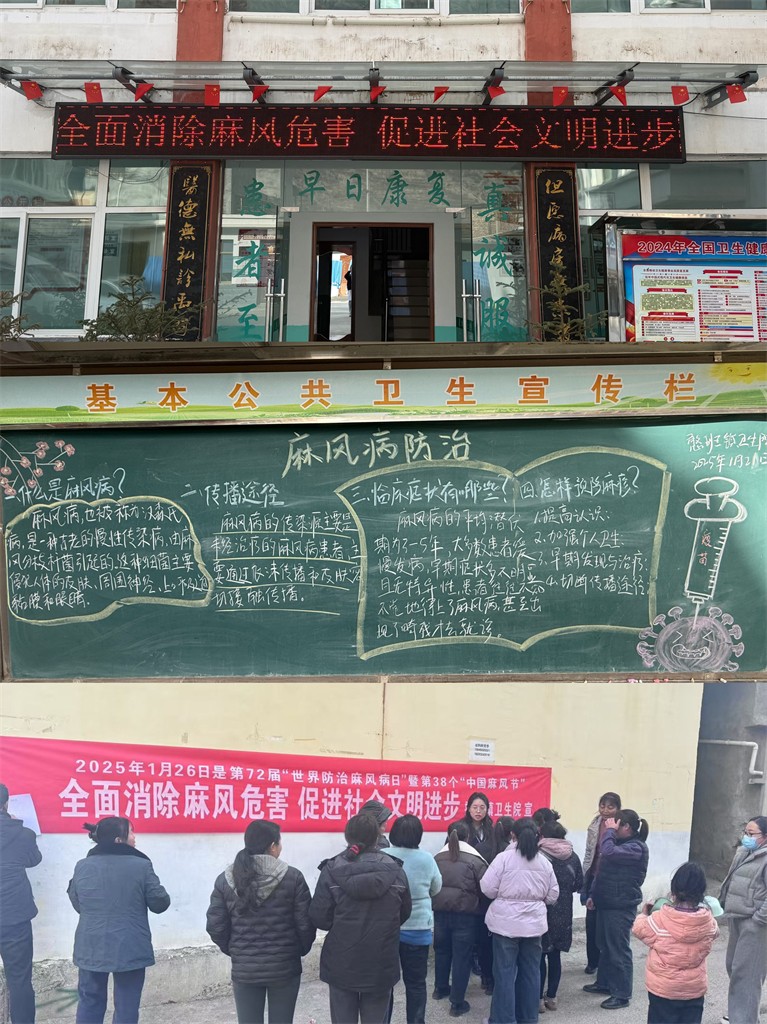 全面消除麻风危害 促进社会文明进步
早日康复
患者至
真诚服
醫德無私
2024年全国卫生健康
基本公共卫生宣传栏
麻风病防治
2025年1月21日
一什么是麻风病?
麻风病,也被称为汉森氏
病,是一种古老的慢性传染病,由麻
风分枝杆菌引起的,这种细菌主要
侵犯人体的皮肤、周围神经、上呼吸道
黏膜和眼睛.
二.传播途径
麻风病的传染源主要是
未经治疗的麻风病患者,主
要通过飞沫传播和皮肤密
切接触传播。
三.临床症状有哪些?
麻风病的平均潜伏
期为3-5年,大多数患者缓
慢发病,早期症状多不明显
且无特异性,患者往往不
知不觉地得上了麻风病,甚至出
现了畸残才去就诊。
四.怎样预防麻疹?
1.提高认识:
2.加强个人卫生
3.早期发现与治疗:
4.切断传播途径
疫苗
2025年1月26日是第72届“世界防治麻风病日”暨第38个“中国麻风节”
全面消除麻风危害 促进社会文明进步
卫生院 宣